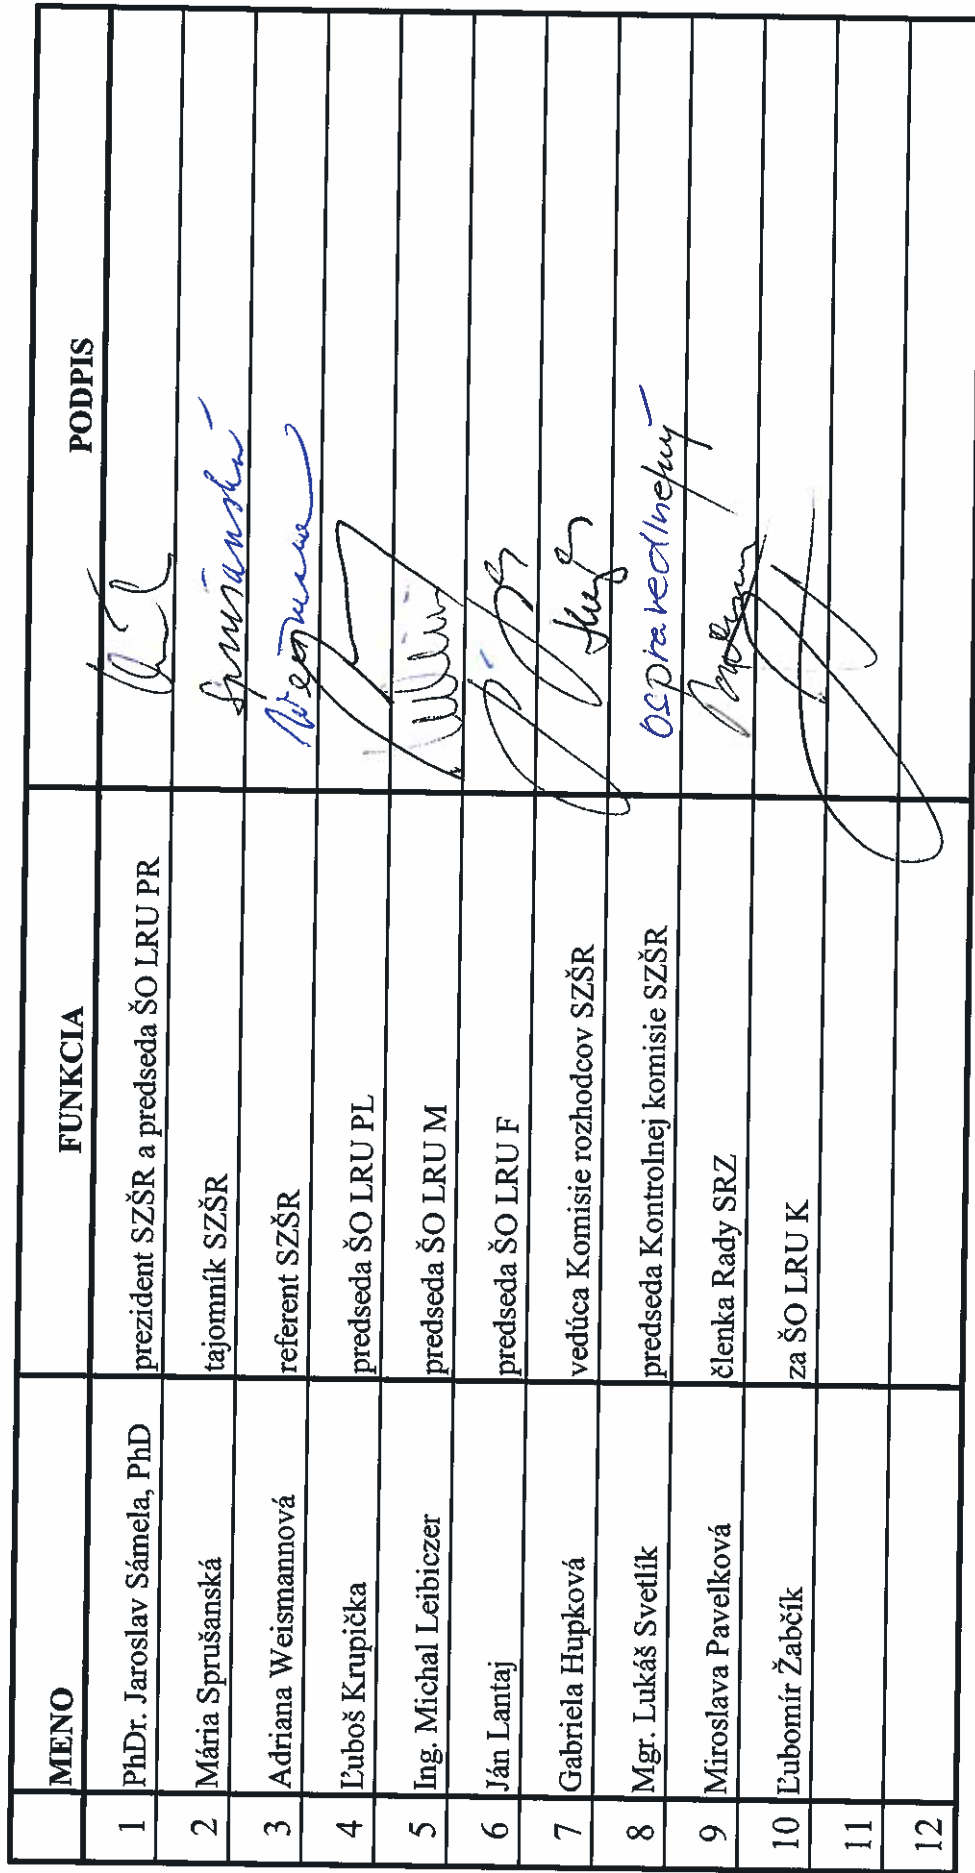 MENO FUNKCIA PODPIS
1 PhDr. Jaroslav Sámela, PhD prezident SZŠR a predseda ŠO LRU PR
2 Mária Sprušanská tajomník SZŠR
3 Adriana Weismannová referent SZŠR
4 Ľuboš Krupička predseda ŠO LRU PL
5 Ing. Michal Leibiczer predseda ŠO LRU M
6 Ján Lantaj predseda ŠO LRU F
7 Gabriela Hupková vedúca Komisie rozhodcov SZŠR
8 Mgr. Lukáš Svetlík predseda Kontrolnej komisie SZŠR ospravedlnený
9 Miroslava Pavelková členka Rady SRZ
10 Ľubomír Žabčík za ŠO LRU K
11
12